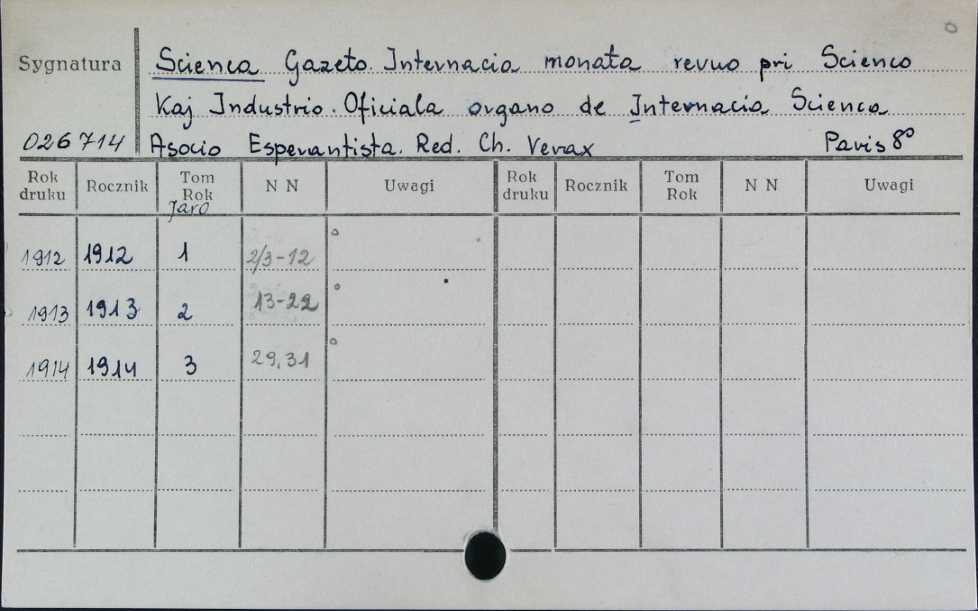 Sygnatura
Scienca Gazeto. Internacia monata revuo pri Scienco
Kaj Industrio. Oficiala organo de Internacia Scienca
026714 Asocio Esperantista. Red. Ch. Verax Paris 8°
Rok druku Rocznik Tom Rok N N Uwagi Rok druku Rocznik Tom Rok N N Uwagi
Jaro
1912 1912 1 2/3-12
1913 1913 2 13-22
1914 1914 3 29,31